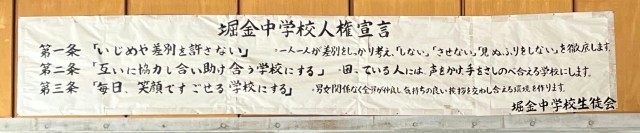 堀金中学校人権宣言
第一条 「いじめや差別を許さない」 ・一人一人が差別をしっかり考え、「しない」「させない」「見ぬふりをしない」を徹底します。
第二条 「互いに協力し合い助け合う学校にする」 ・困っている人には、声をかけ、手をさしのべ合える学校にします。
第三条 「毎日、笑顔ですごせる学校にする」 ・男女関係なく全員が仲良し、気持ちの良い挨拶を交わし合える環境を作ります。
堀金中学校生徒会